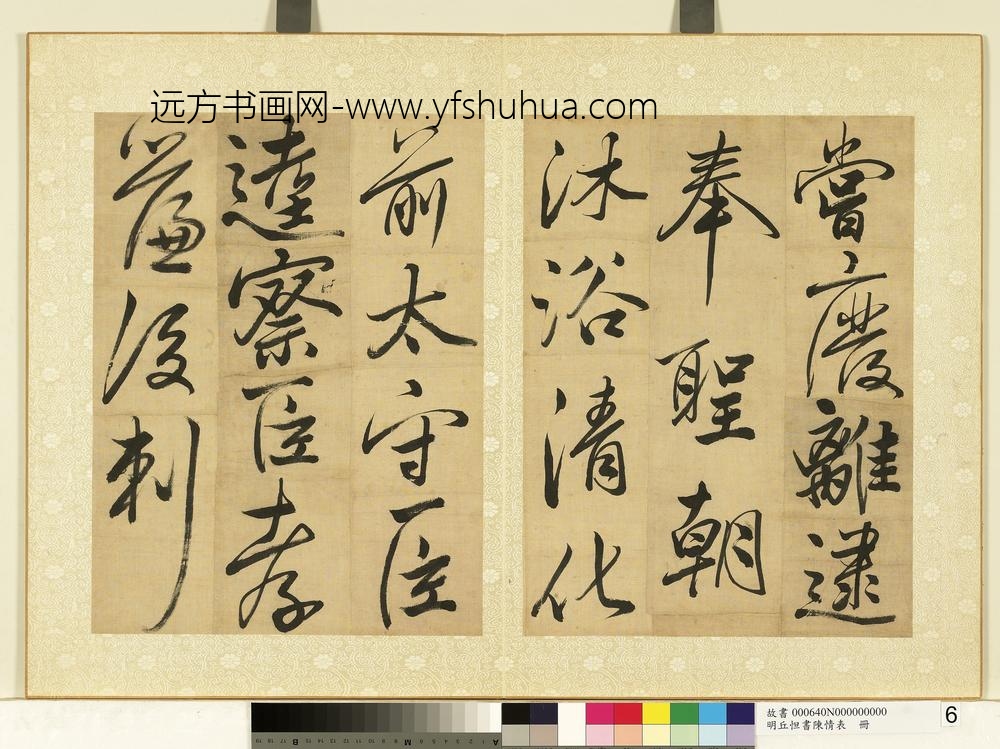 远方书画网-www.yfshuhua.com
嘗廢離逮
奉聖朝
沐浴清化
前太守臣
逵察臣孝
廉後刺
故書 000640N000000000
明丘怛書陳情表 冊
6